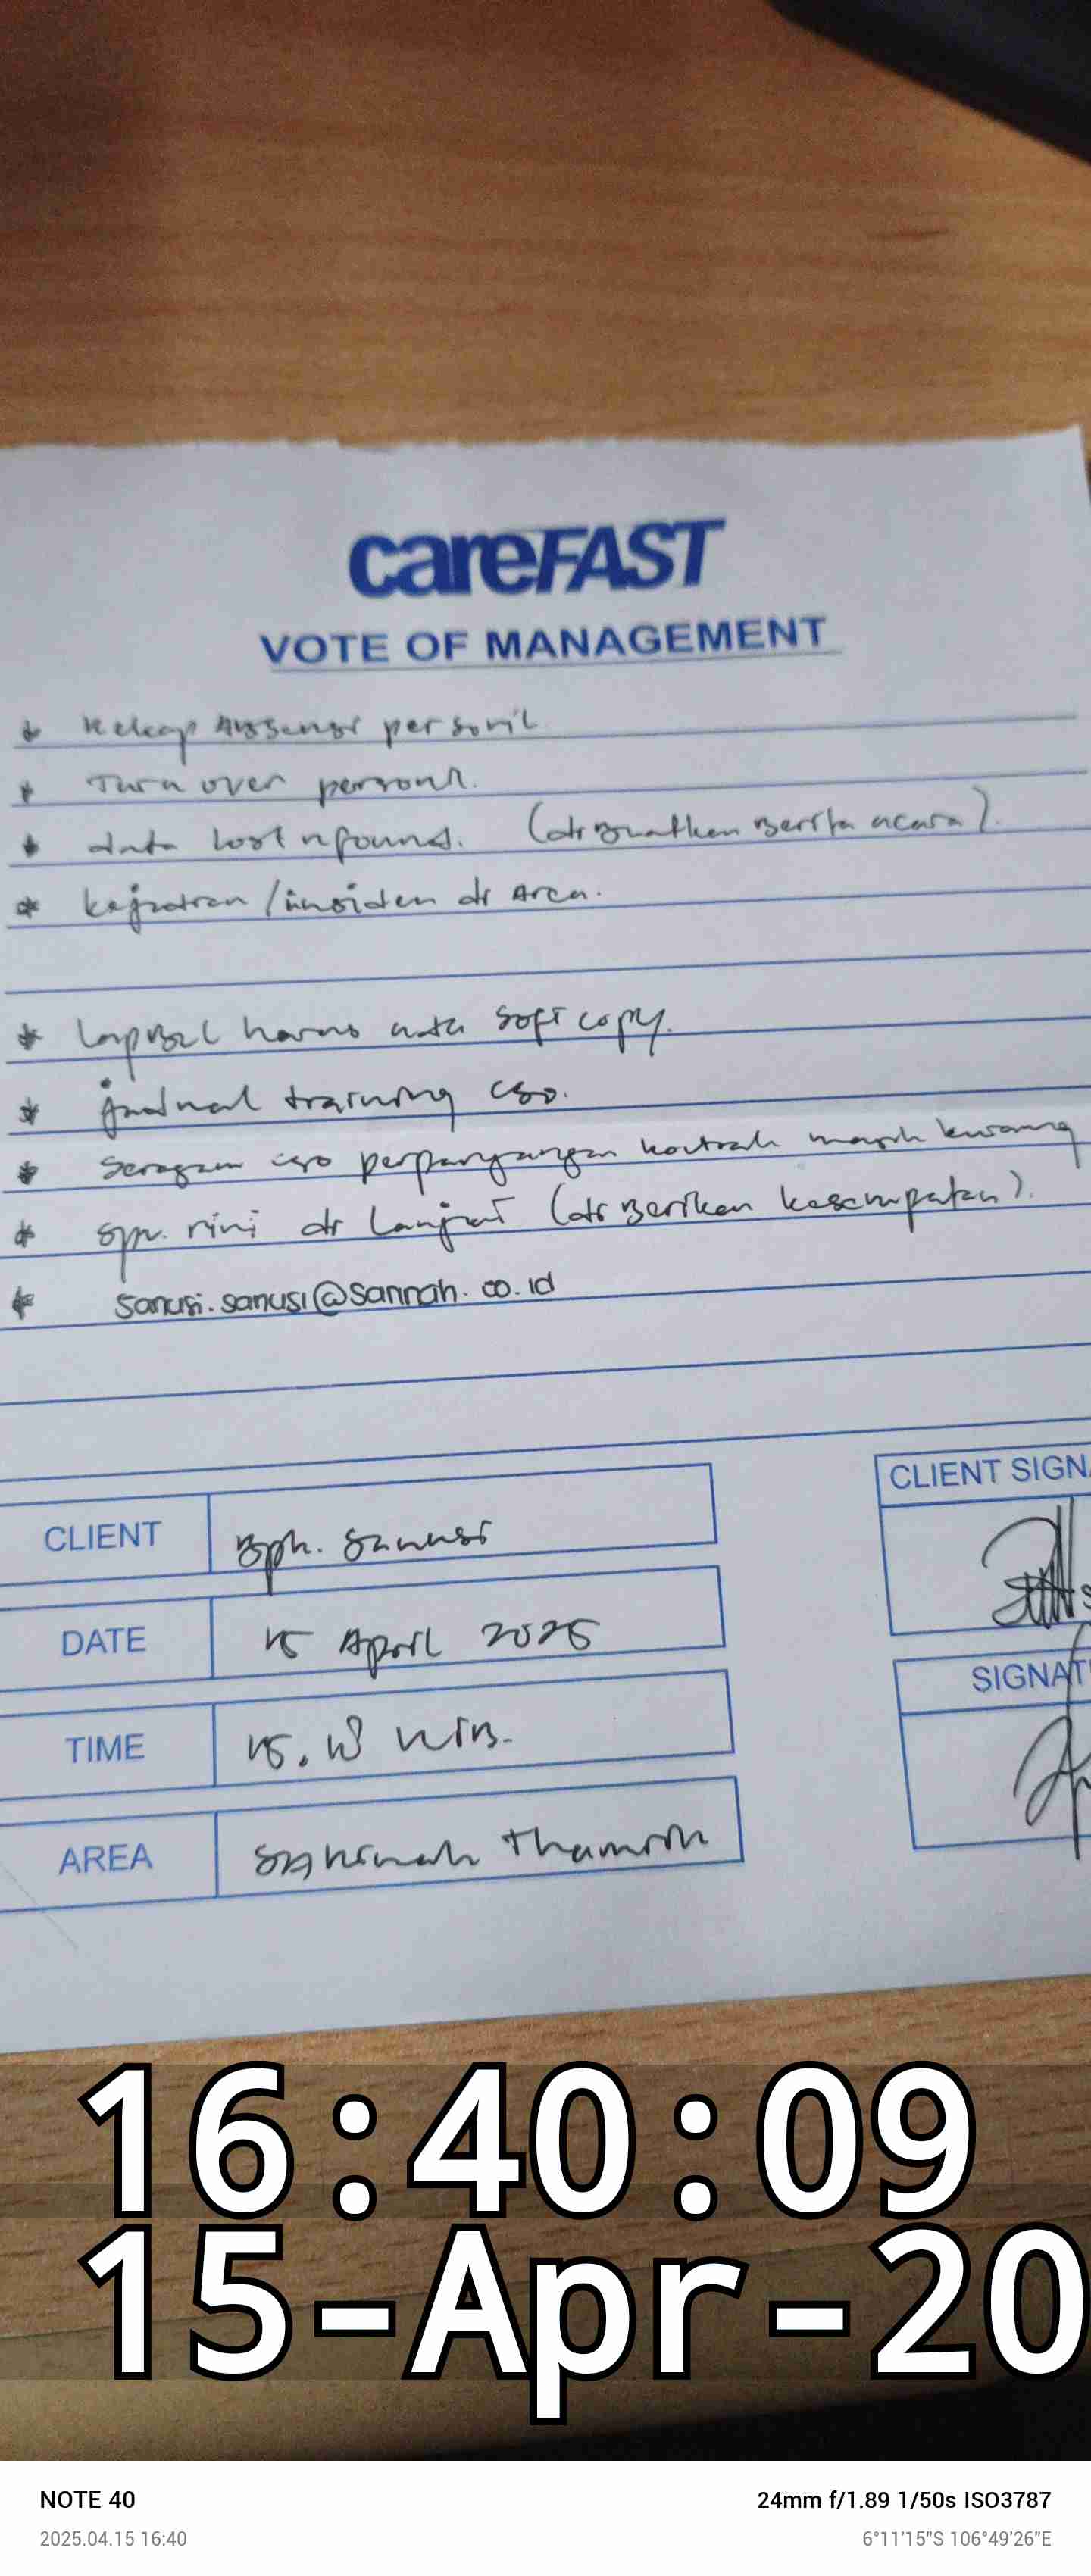 careFAST
VOTE OF MANAGEMENT
* Rekap Absensi personil
* Turn over personil.
* data lost n found. (di buatkan Berita acara).
* kejadian / insiden di Area.
* Lapbul harus ada softcopy.
* jadwal training cso.
* Seragam cso perpanjangan kontrak masih kurang
* spv. rini di lanjut (di Berikan kesempatan).
* sanusi.sanusi@sarinah.co.id
CLIENT
Bpk. Sanusi
CLIENT SIGNA
DATE
15 April 2025
SIGNAT
TIME
15.18 WIB.
AREA
Sarinah Thamrin
16:40:09
15-Apr-20
NOTE 40
24mm f/1.89 1/50s ISO3787
2025.04.15 16:40
6°11'15"S 106°49'26"E